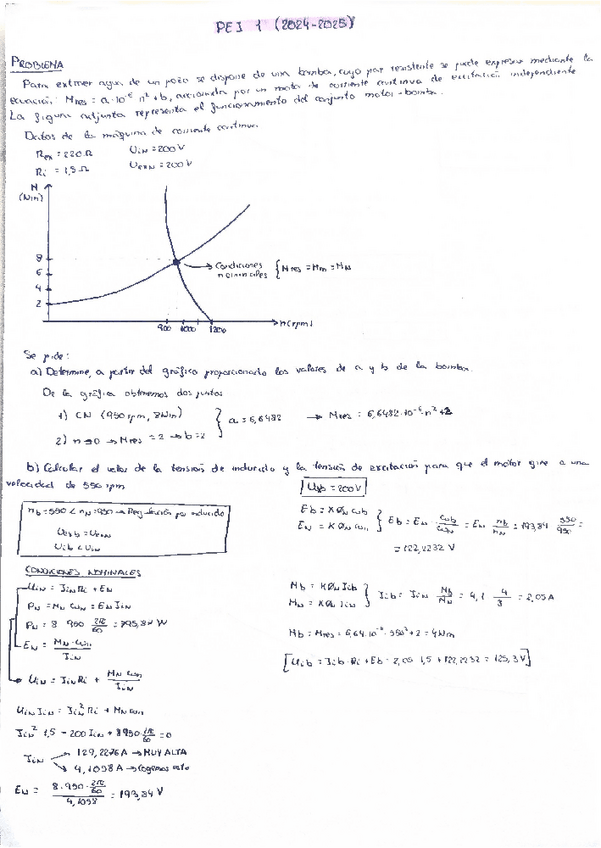 PEI 1 (2024-2025)
PROBLEMA
Para extraer agua de un pozo se dispone de una bomba, cuyo par resistente se puede expresar mediante la
ecuación: Mres = a·10⁻⁶ n² + b, accionada por un motor de corriente continua de excitación independiente
La figura adjunta representa el funcionamiento del conjunto motor-bomba.
Datos de la máquina de corriente continua.
Rex = 220 Ω UiN = 200 V
Ri = 1,5 Ω UexN = 200 V
(Nm)
8
6
4
2
Condiciones nominales { Mres = Mm = MN
900 1000 1200 n(rpm)
Se pide:
a) Determine, a partir del gráfico proporcionado los valores de a y b de la bomba.
De la gráfica obtenemos dos puntos
1) CN (950 rpm, 8Nm)
2) n=0 → Mres = 2 → b=2
} a = 6,6482 → Mres = 6,6482·10⁻⁶·n²+2
b) Calcular el valor de la tensión de inducido y la tensión de excitación para que el motor gire a una
velocidad de 550 rpm
nb = 550 < nN = 950 → Regulación por inducido
Uexb = UexN
Uib < UiN
Uexb = 200V
Eb = KØN ωb
EN = KØN ωN
} Eb = EN · ωb/ωN = EN nb/nN = 193,84 550/950 =
= 112,2232 V
CONDICIONES NOMINALES
UiN = IiN Ri + EN
PN = MN ωN = EN IiN
PN = 8 · 950 2π/60 = 795,87 W
EN = MN·ωN / IiN
UiN = IiN Ri + MN ωN / IiN
UiN IiN = IiN² Ri + MN ωN
IiN² 1,5 - 200 IiN + 8·950 2π/60 = 0
IiN → 129,2276 A → MUY ALTA
→ 4,1058 A → Cogemos esta
EN = 8·950·2π/60 / 4,1058 = 193,84 V
Mb = KØN Iib
MN = KØN IiN
} Iib = IiN Mb/MN = 4,1 · 4/8 = 2,05 A
Mb = Mres = 6,64·10⁻⁶ · 550² + 2 = 4Nm
[Uib = Iib · Ri + Eb = 2,05 · 1,5 + 112,2232 = 115,3 V]